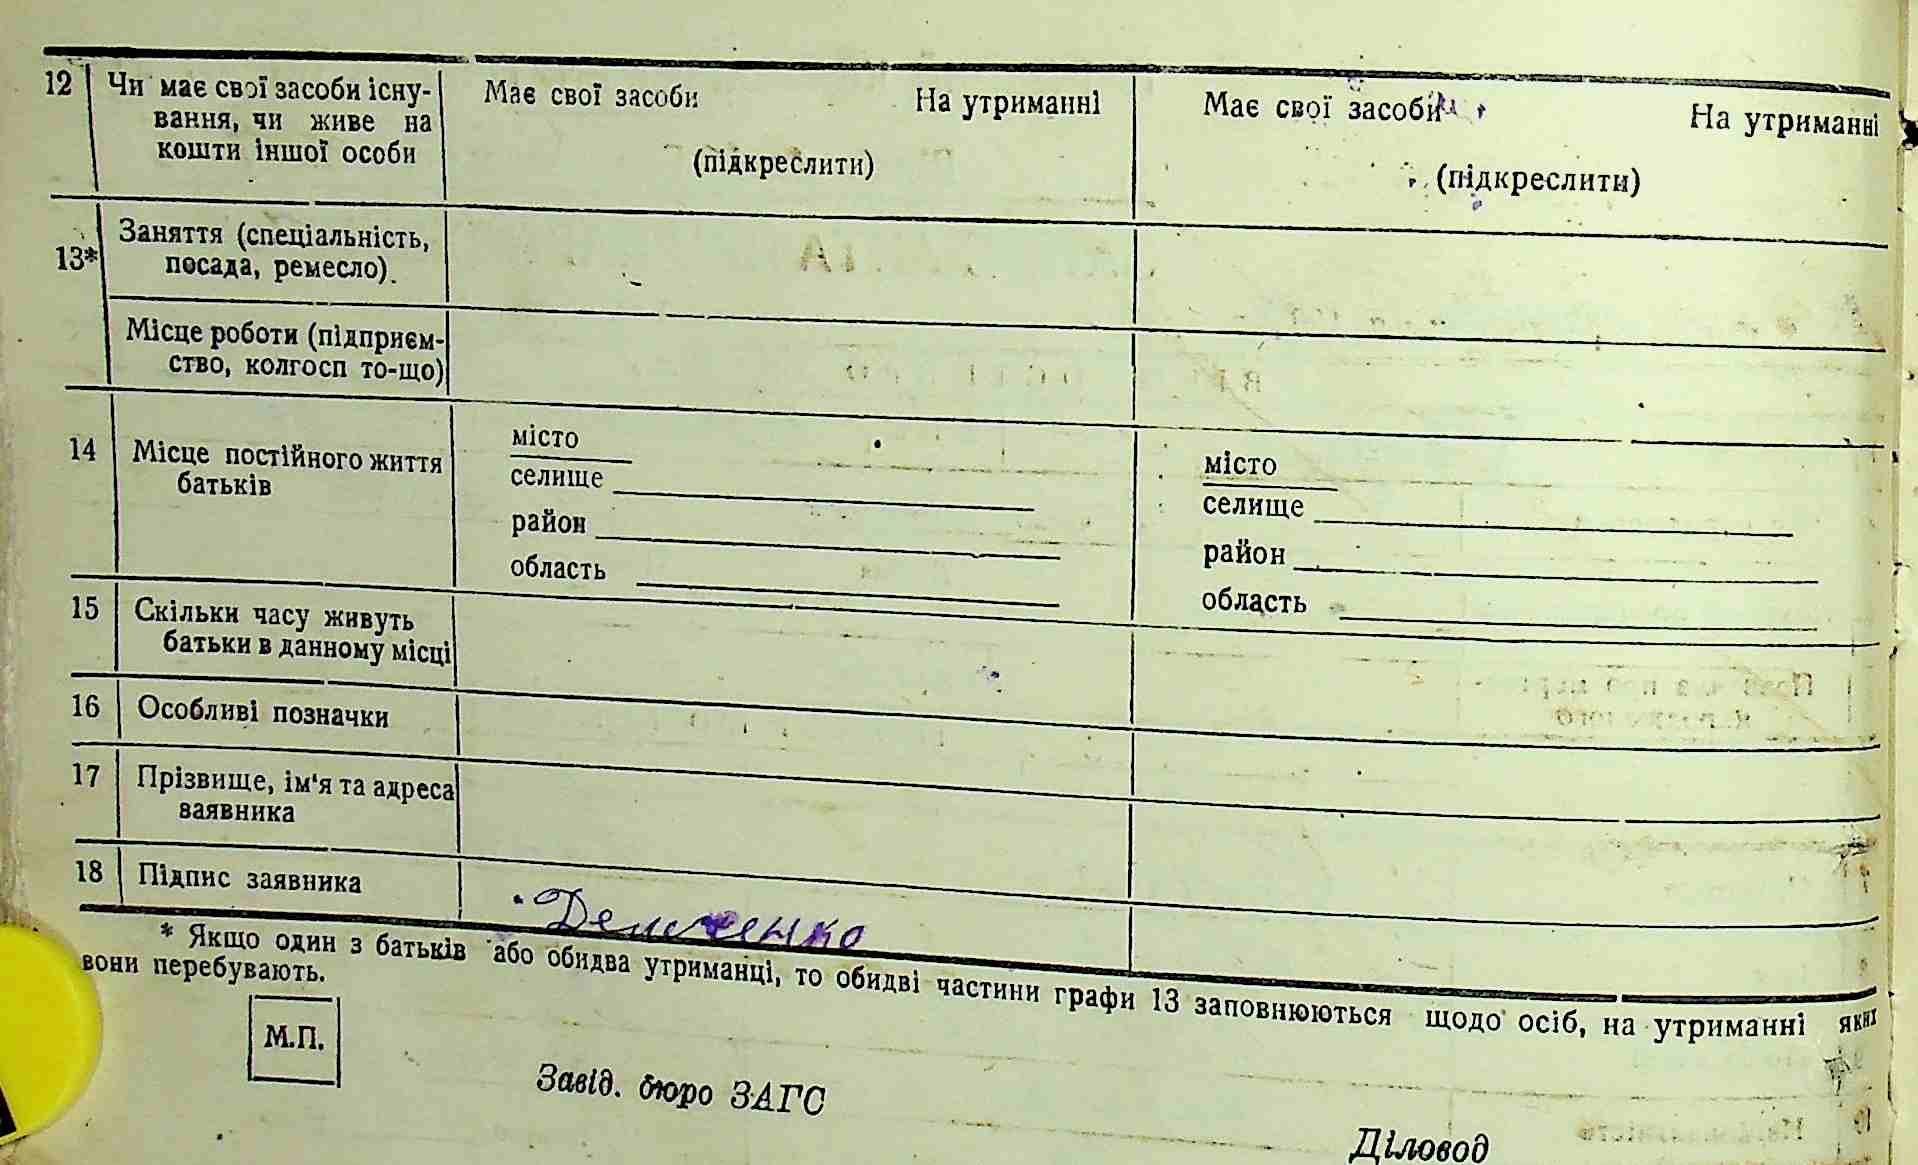 12 Чи має свої засоби існу-
вання, чи живе на
кошти іншої особи
Має свої засоби На утриманні
(підкреслити)
Має свої засоби На утриманні
(підкреслити)
13* Заняття (спеціальність,
посада, ремесло)
Місце роботи (підприєм-
ство, колгосп то-що)
14 Місце постійного життя
батьків
місто
селище
район
область
місто
селище
район
область
15 Скільки часу живуть
батьки в данному місці
16 Особливі позначки
17 Прізвище, ім'я та адреса
заявника
18 Підпис заявника
* Якщо один з батьків або обидва утриманці, то обидві частини графи 13 заповнюються щодо осіб, на утриманні яких
вони перебувають.
М.П.
Завід. бюро ЗАГС
Діловод